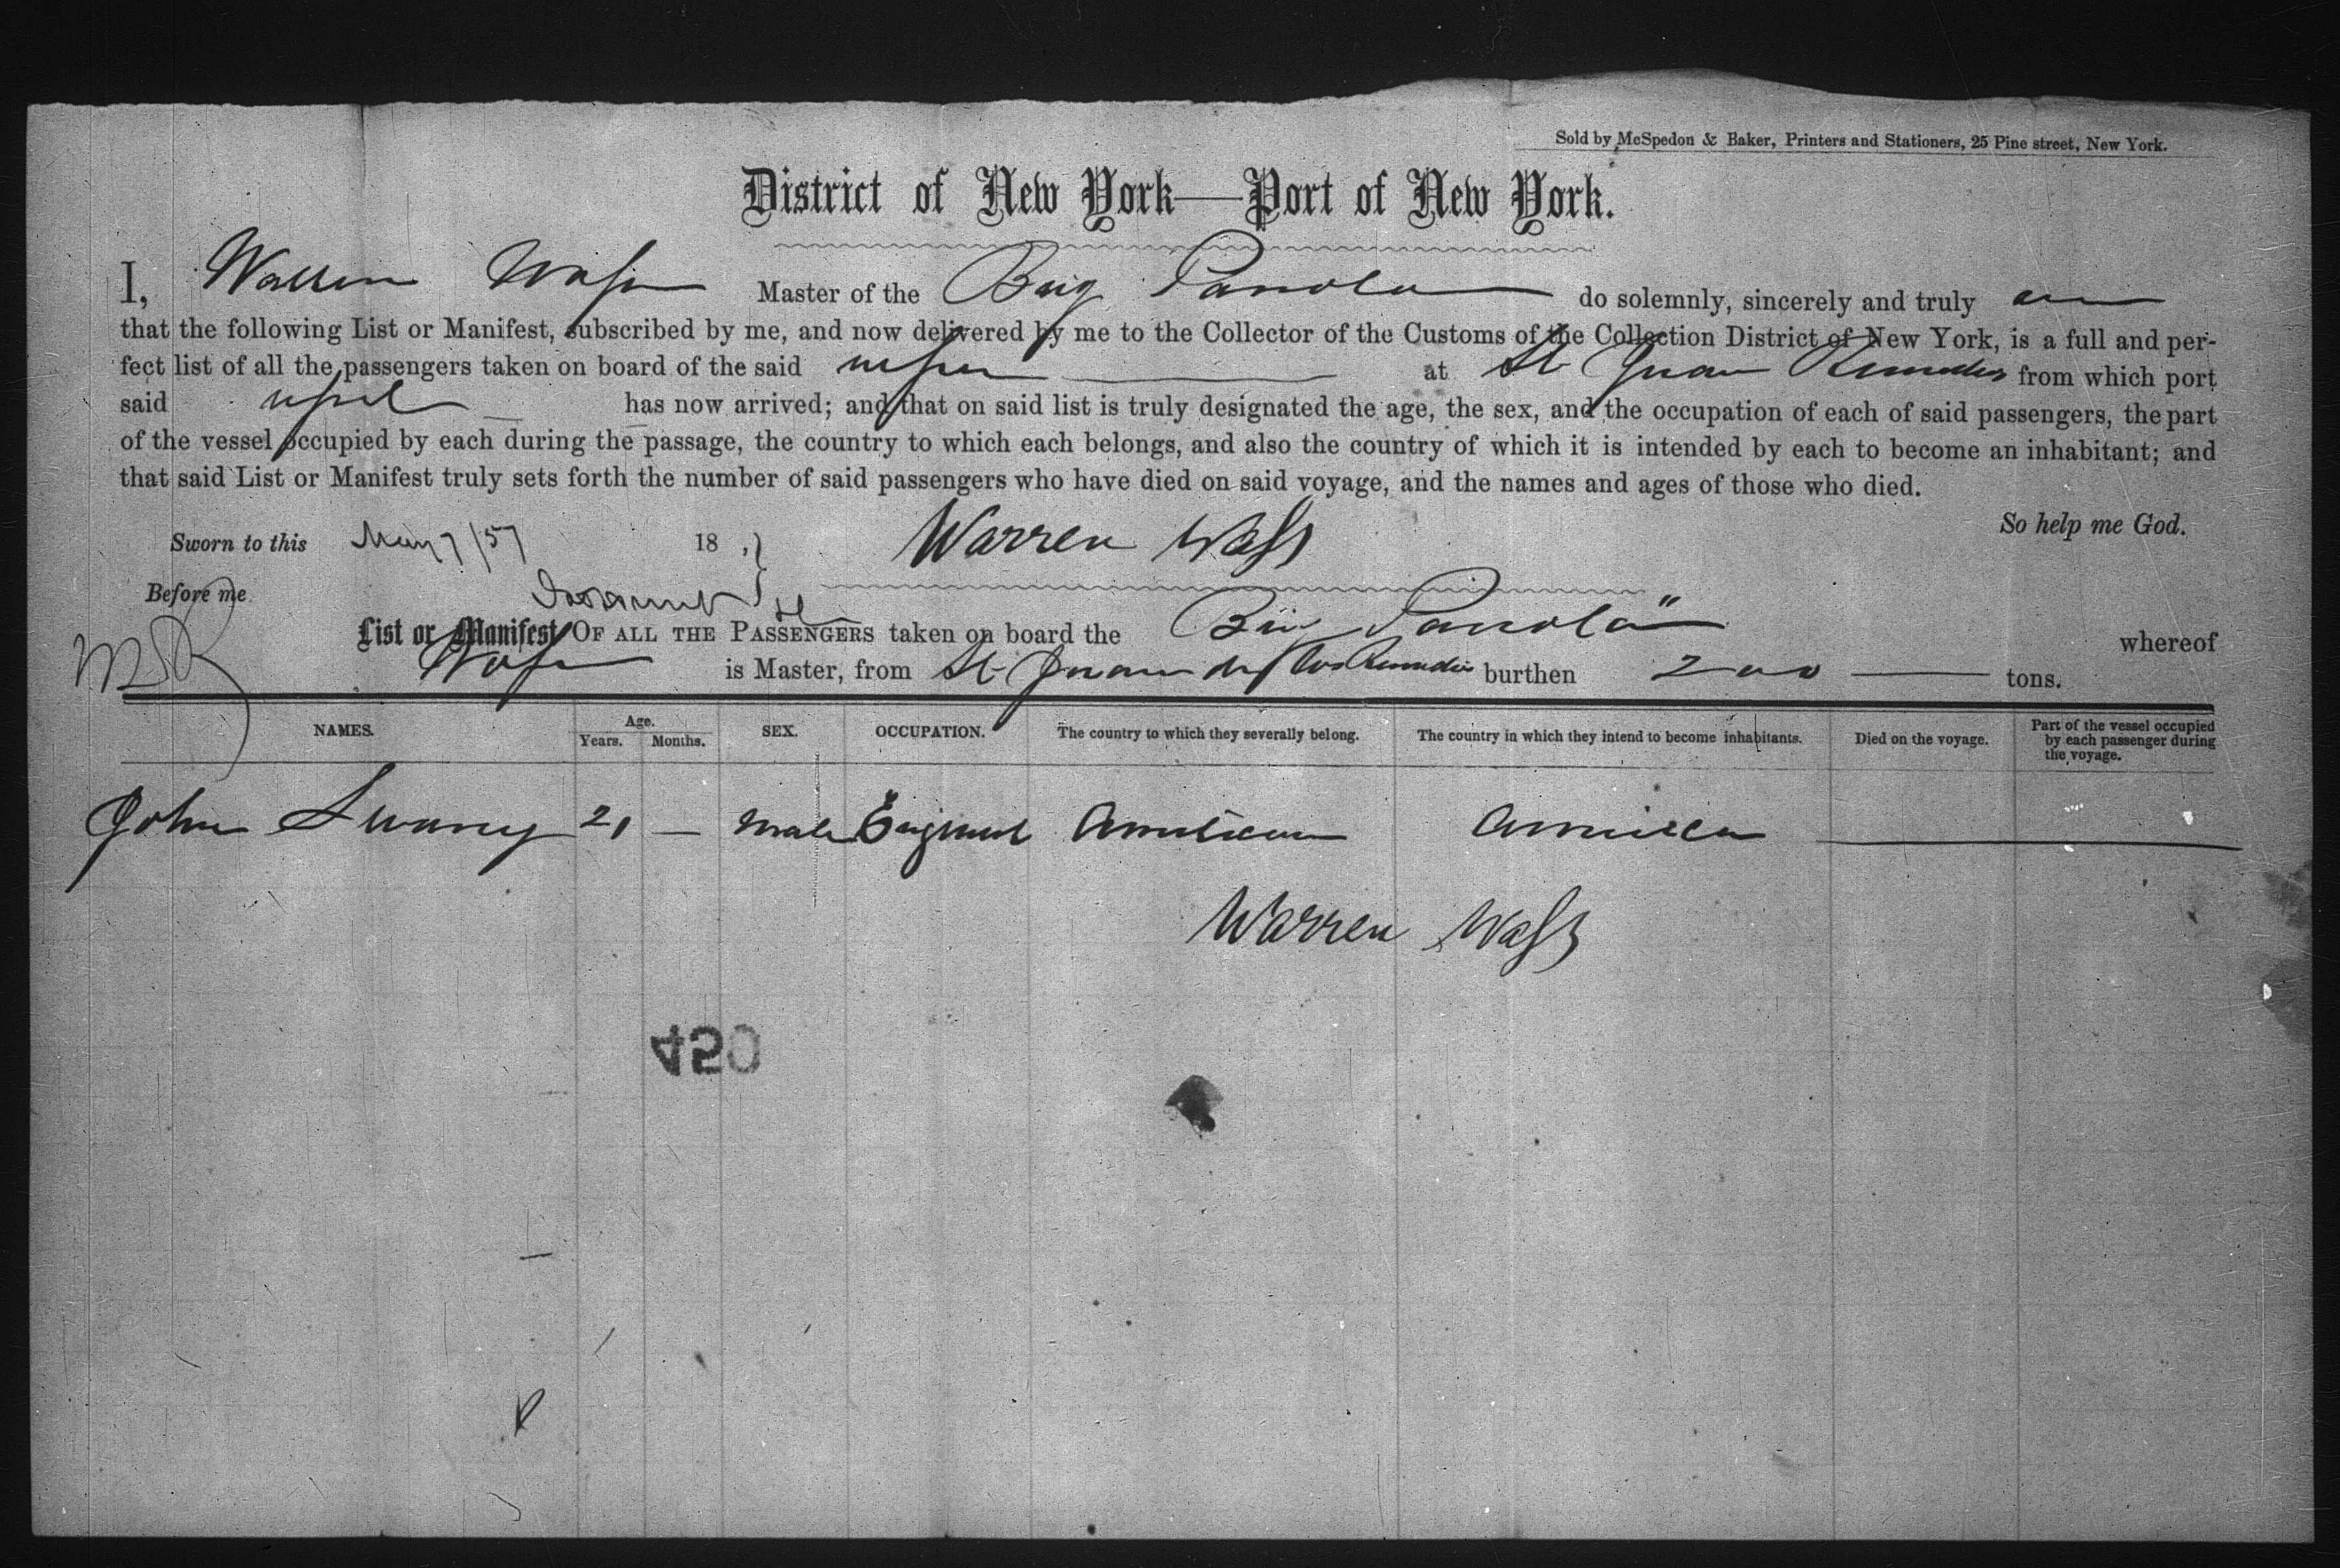 Sold by McSpedon & Baker, Printers and Stationers, 25 Pine street, New York.
District of New York—Port of New York.
I, Warren Wass Master of the Brig Panola do solemnly, sincerely and truly
that the following List or Manifest, subscribed by me, and now delivered by me to the Collector of the Customs of the Collection District of New York, is a full and per-
fect list of all the passengers taken on board of the said at St Juan Remedios from which port
said vessel has now arrived; and that on said list is truly designated the age, the sex, and the occupation of each of said passengers, the part
of the vessel occupied by each during the passage, the country to which each belongs, and also the country of which it is intended by each to become an inhabitant; and
that said List or Manifest truly sets forth the number of said passengers who have died on said voyage, and the names and ages of those who died.
So help me God.
Sworn to this May 7/57 18 , Warren Wass
Before me
List or Manifest OF ALL THE PASSENGERS taken on board the Brig Panola whereof
Wass is Master, from St Juan de los Remedios burthen 200 tons.
NAMES. Age. Years. Months. SEX. OCCUPATION. The country to which they severally belong. The country in which they intend to become inhabitants. Died on the voyage. Part of the vessel occupied by each passenger during the voyage.
John Swaney 21 — Male American America
Warren Wass
450